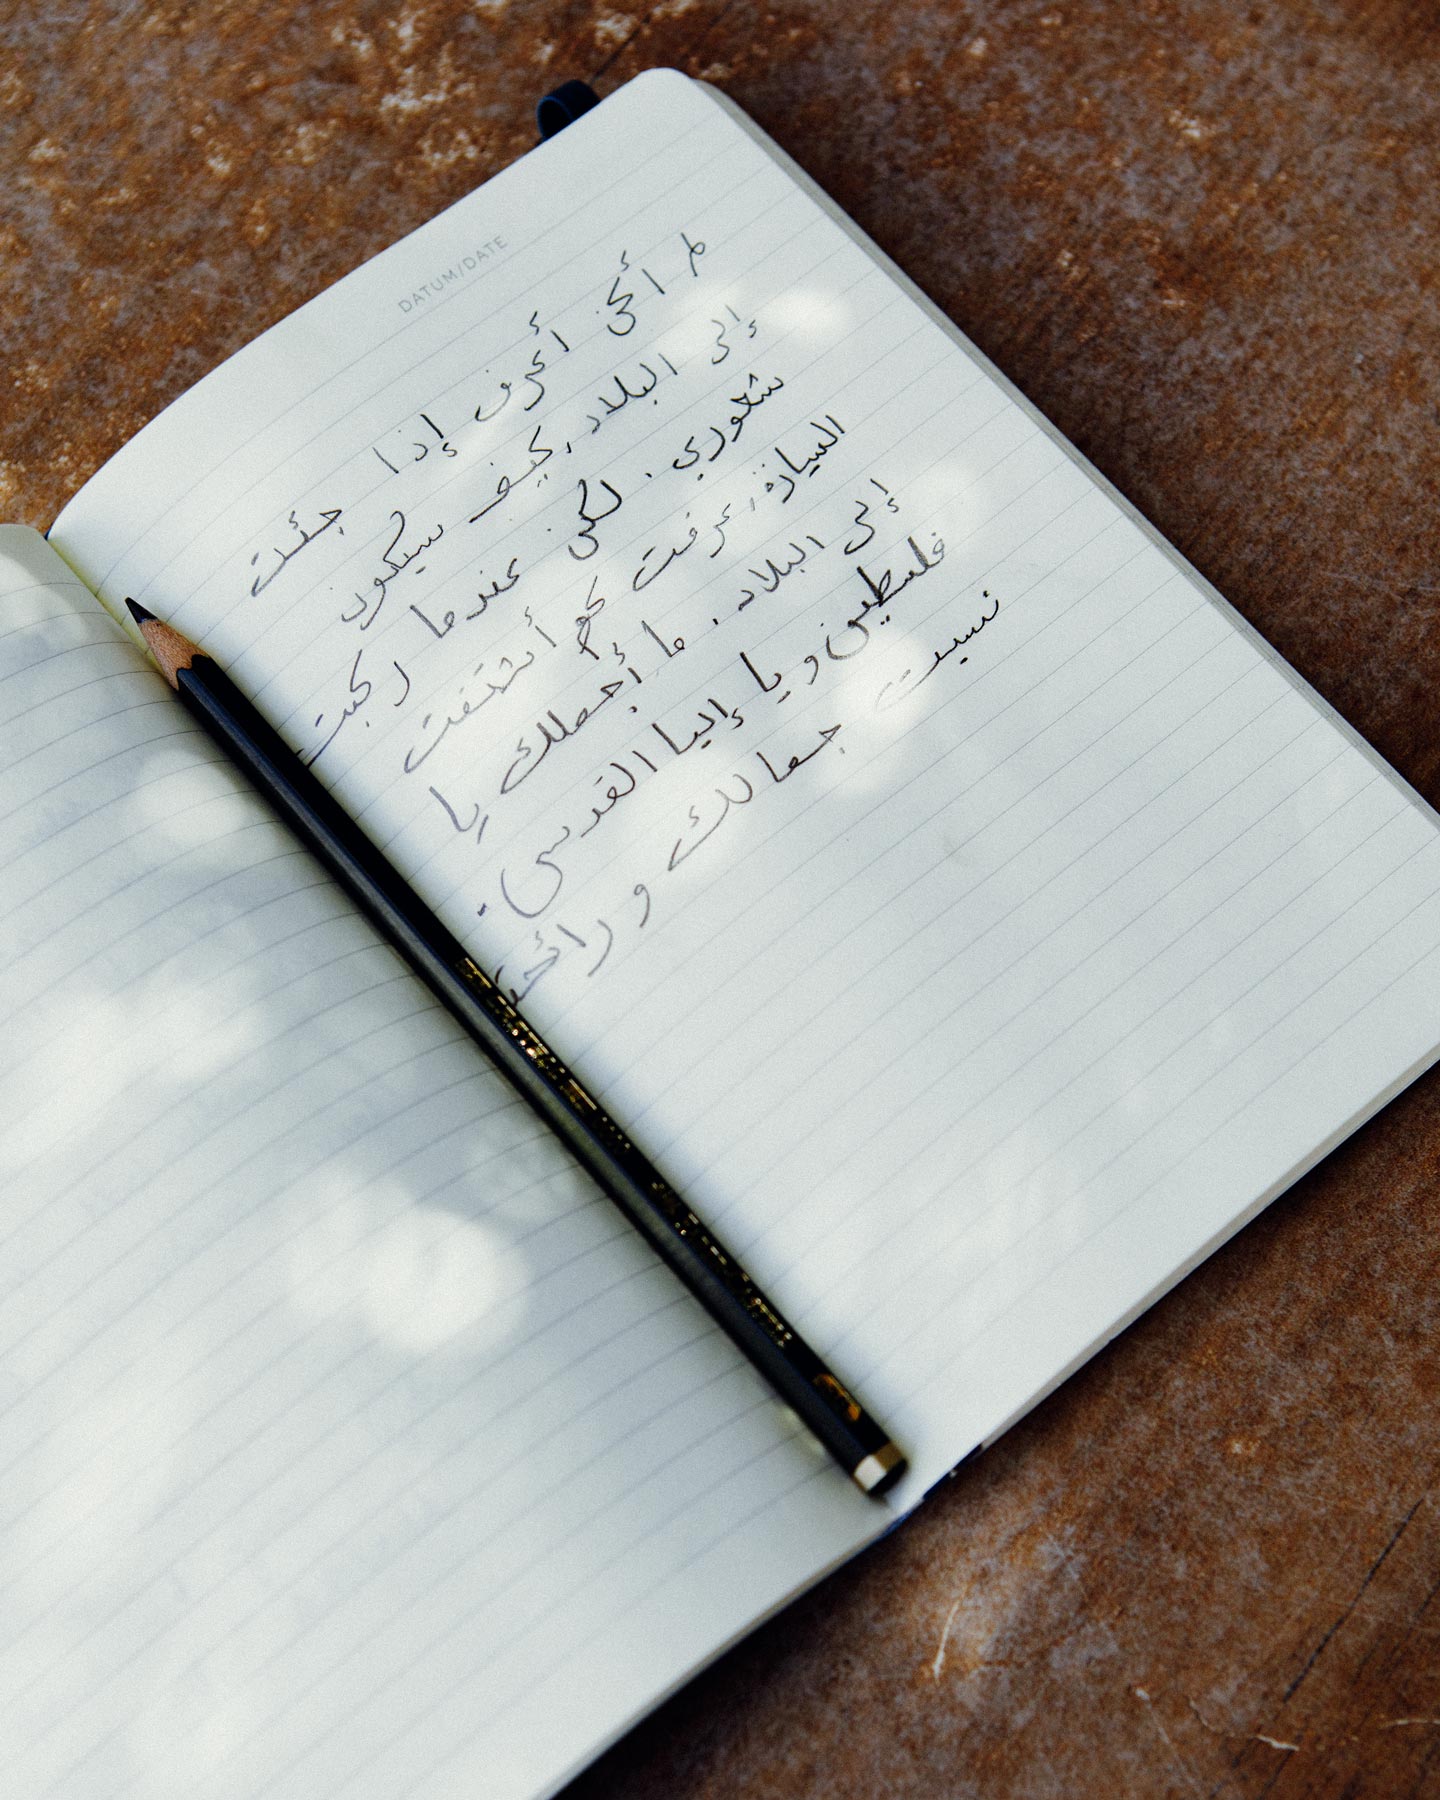 DATUM/DATE
لم أكن أعرف إذا جئت
إلى البلاد، كيف سيكون
شعوري. لكن عندما ركبت
السيارة، عرفت كم أشتقت
إلى البلاد. ما أجملك يا
فلسطين و يا إليا القدس.
نسيت جمالك و رائحة